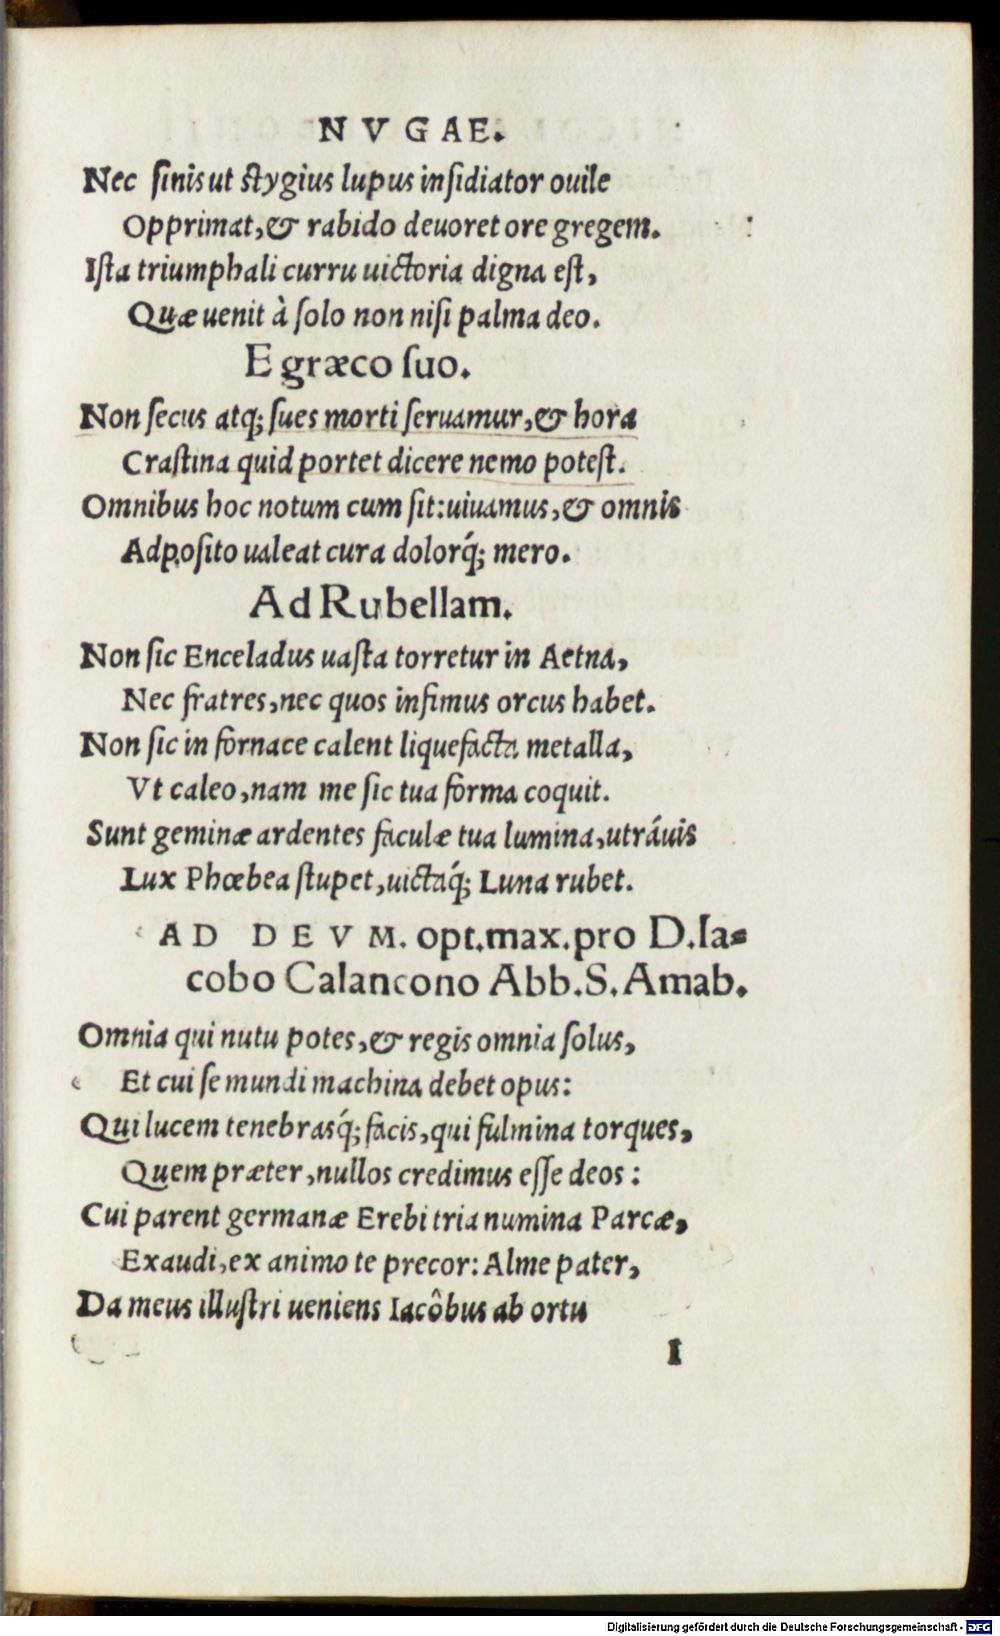 NVGAE.
Nec sinis ut stygius lupus insidiator ouile
Opprimat, & rabido deuoret ore gregem.
Ista triumphali curru uictoria digna est,
Quæ uenit à solo non nisi palma deo.
E græco suo.
Non secus atq; sues morti seruamur, & hora
Crastina quid portet dicere nemo potest.
Omnibus hoc notum cum sit: uiuamus, & omnis
Adposito ualeat cura dolorq́; mero.
Ad Rubellam.
Non sic Enceladus uasta torretur in Aetna,
Nec fratres, nec quos infimus orcus habet.
Non sic in fornace calent liquefacta metalla,
Vt caleo, nam me sic tua forma coquit.
Sunt geminæ ardentes faculæ tua lumina, utráuis
Lux Phœbea stupet, uictaq́; Luna rubet.
AD DEVM. opt. max. pro D. Ia-
cobo Calancono Abb. S. Amab.
Omnia qui nutu potes, & regis omnia solus,
Et cui se mundi machina debet opus:
Qui lucem tenebrasq́; facis, qui fulmina torques,
Quem præter, nullos credimus esse deos:
Cui parent germanæ Erebi tria numina Parcæ,
Exaudi, ex animo te precor: Alme pater,
Da meus illustri ueniens Iacôbus ab ortu
I
Digitalisierung gefördert durch die Deutsche Forschungsgemeinschaft - DFG